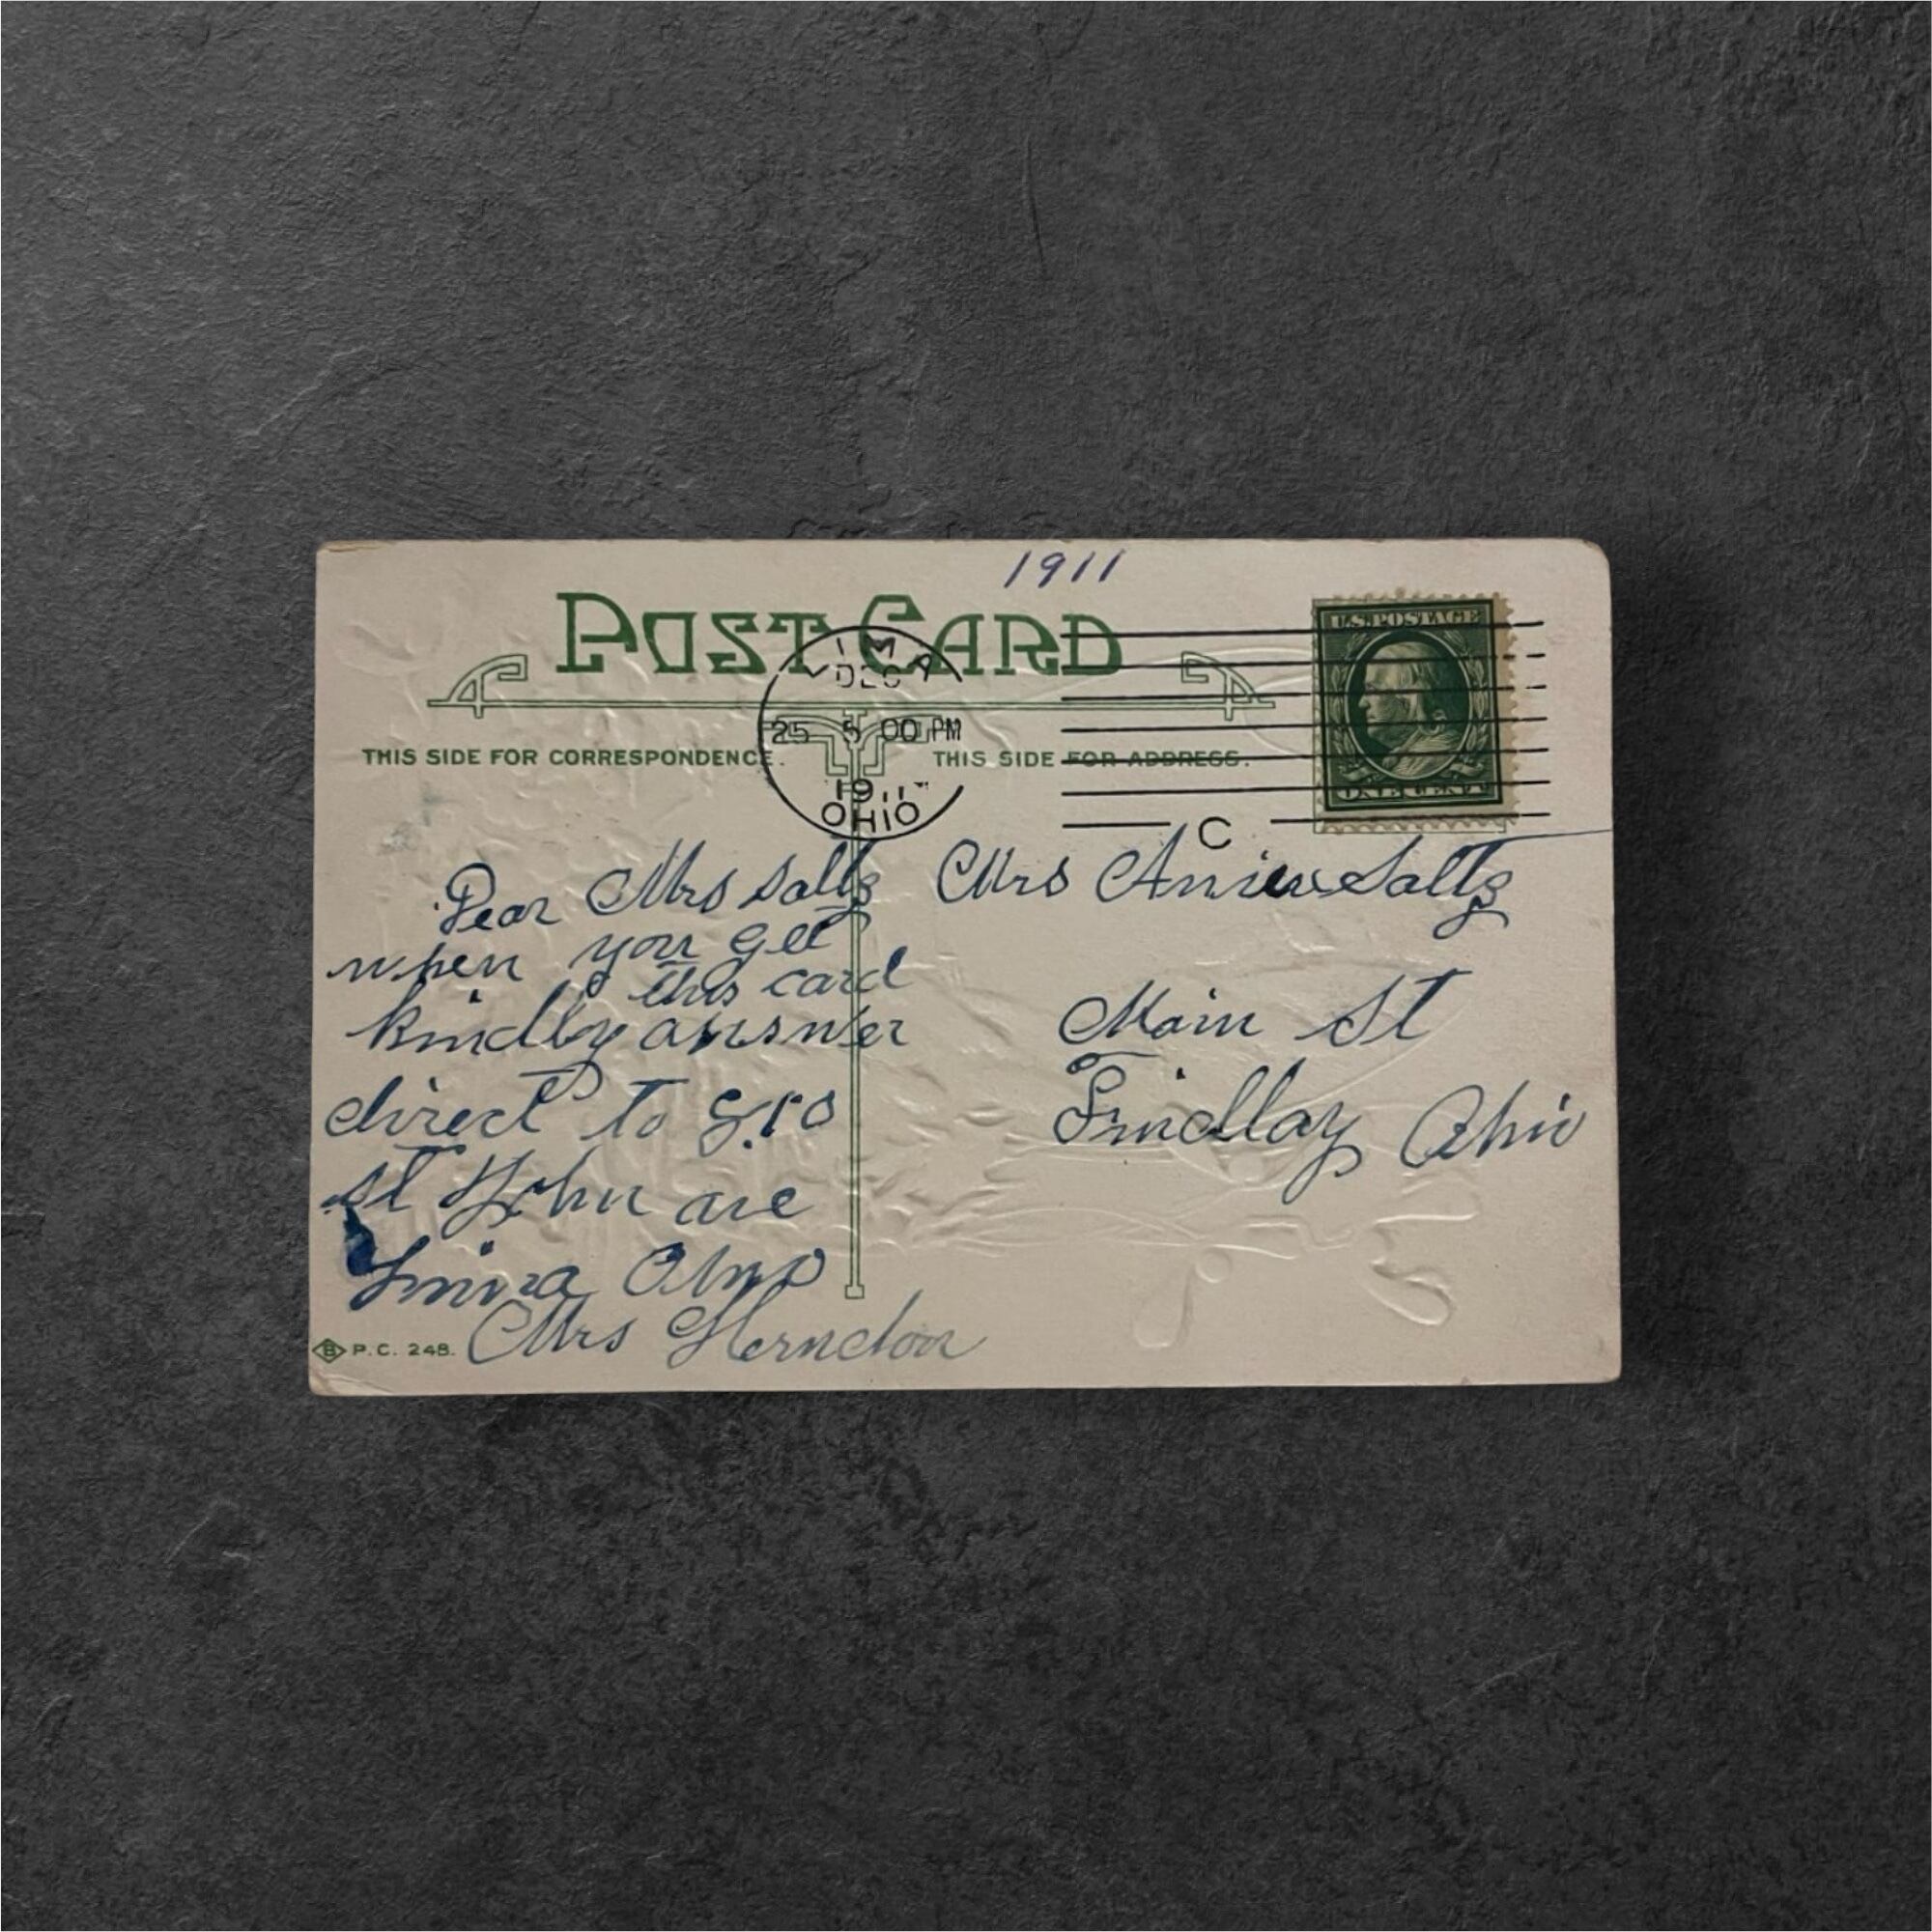 1911
POST CARD
LIMA
DEC
25 5 00 PM
1911
OHIO
U.S. POSTAGE
ONE CENT
THIS SIDE FOR CORRESPONDENCE.
THIS SIDE FOR ADDRESS.
C
Dear Mrs Saltz
when you get
this card
kindly answer
direct to
st John ave
Lima Ohio
Mrs Herndon
Mrs Saltz
Main St
Findlay Ohio
B P.C. 248.